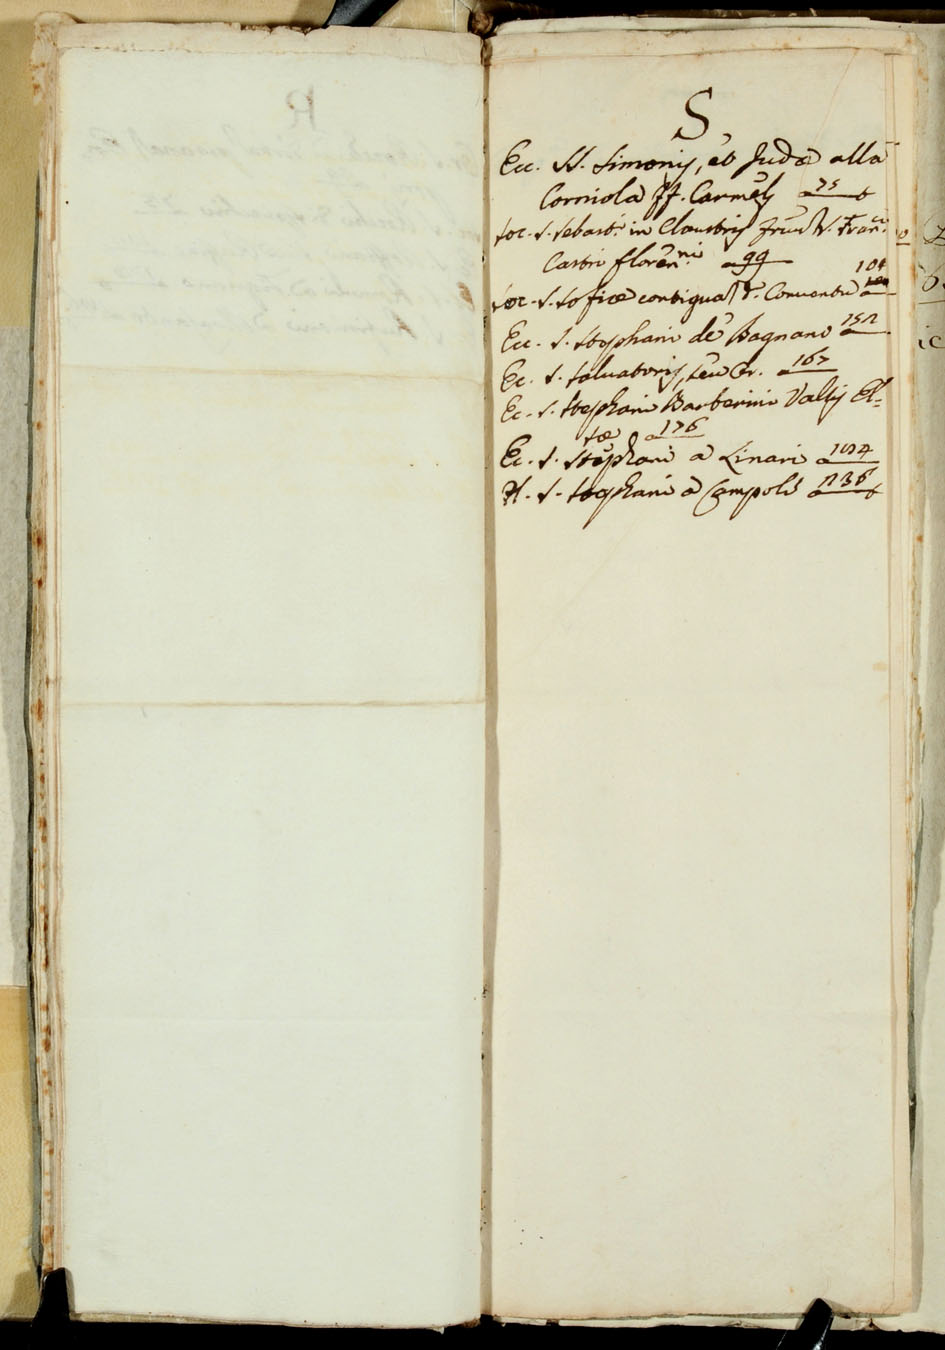 S
Ecc. SS. Simonis, et Judæ alla
Corniola ff. Carmel. 75
Soc. S. Sebast. in Claustris S. Franci
Castri florenni 99
104
Soc. S. Sofiæ contigua d. Conventui
Ecc. S. Stephani de Bagnano 152
Ec. S. Salvatoris, seu Cr. 167
Ec. S. Stephani Barberini Vallis El=
sæ 176
Ec. S. Stephani a Linari 194
H. S. Stephani a Campoli 236